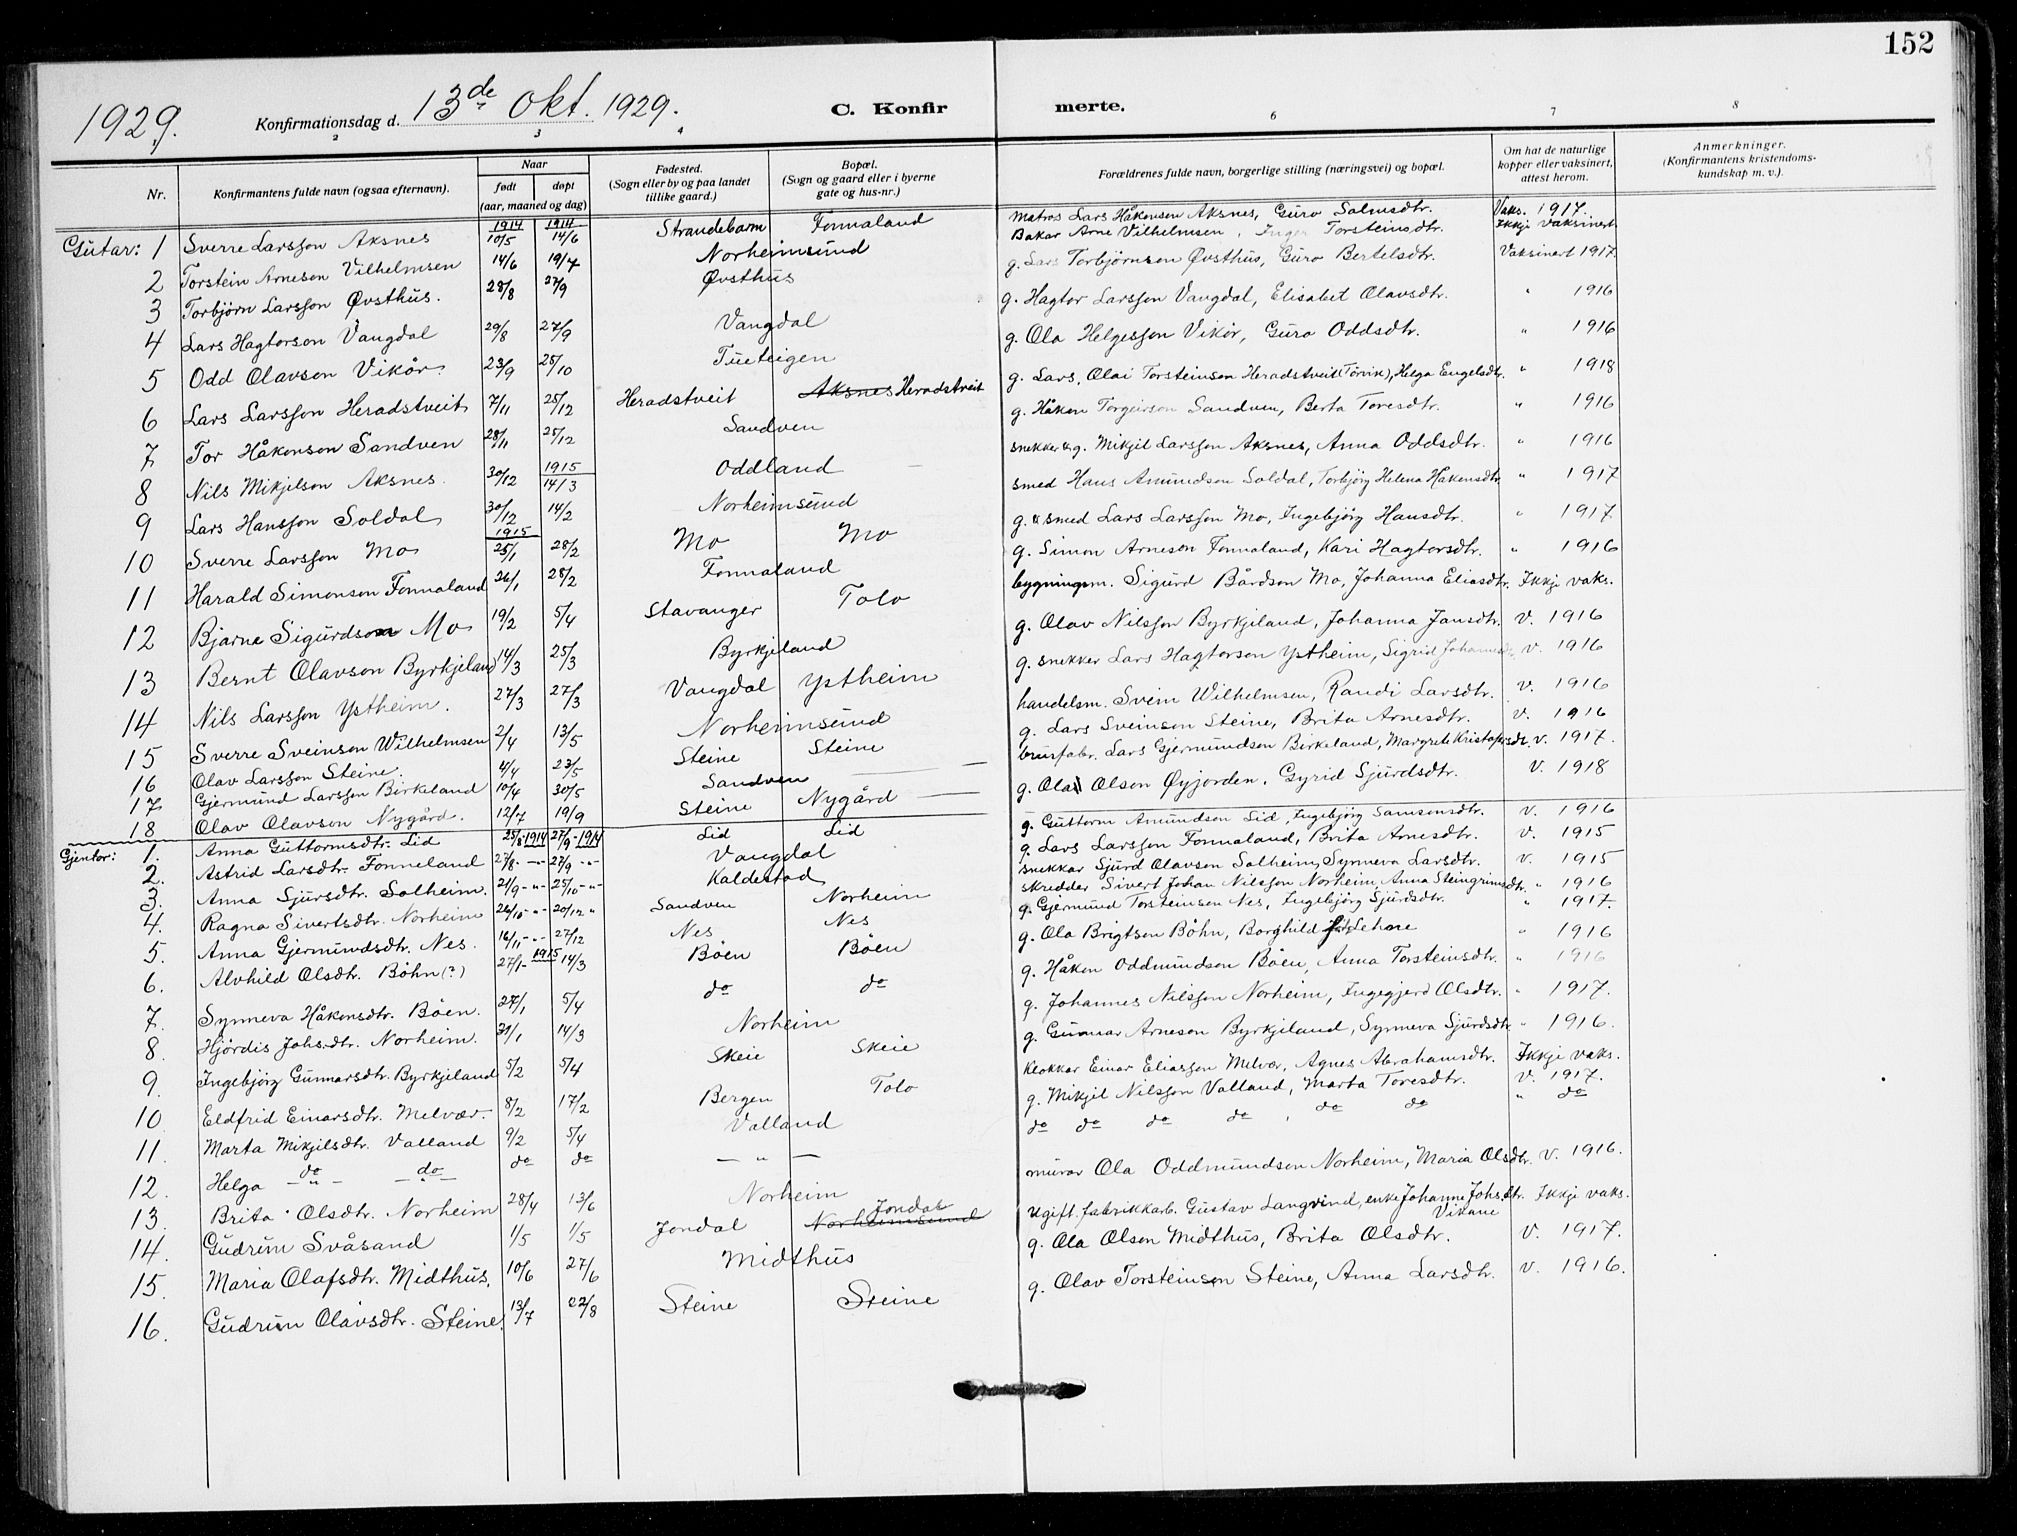 152
1929. Konfirmationsdag d. 13de Okt. 1929. C. Konfirmerte.
2 3 4 6 7 8
Nr. Konfirmantens fulde navn (ogsaa efternavn). Naar født døpt (aar, maaned og dag) Fødested. (Sogn eller by og paa landet tillike gaard.) Bopæl. (Sogn og gaard eller i byerne gate og hus-nr.) Forældrenes fulde navn, borgerlige stilling (næringsvei) og bopæl. Om hat de naturlige kopper eller vaksinert, attest herom. Anmerkninger. (Konfirmantens kristendomskundskap m. v.).
Gutar: 1 Sverre Larsson Aksnes 1914 10/5 1914 14/6 Strandebarm Fonnaland Matros Lars Håkonson Aksnes, Guro Salmsdtr. Vaks. 1917.
2 Torstein Arneson Vilhelmsen 14/6 19/7 Norheimsund Bakar Arne Vilhelmsen, Inger Torsteinsdtr. Ikkje vaksinert
3 Torbjørn Larsson Øvsthus. 28/8 27/9 Øvsthus g. Lars Torbjørnson Øvsthus, Guro Bertelsdtr. Vaksinert 1917.
4 Lars Hagtorson Vangdal 29/8 27/9 Vangdal g. Hagtor Larsson Vangdal, Elisabet Olavsdtr. " 1916
5 Odd Olavson Vikør 23/9 25/10 Tueteigen g. Ola Helgesson Vikør, Guro Oddsdtr. " 1916
6 Lars Larsson Heradstveit 7/11 25/12 Heradstveit Aksnes Heradstveit g. Lars, Olai Torsteinson Heradstveit (Tørvik), Helga Engelsdtr. " 1918
7 Tor Håkonson Sandven 28/11 25/12 Sandven g. Håkon Torgeirson Sandven, Berta Toresdtr. " 1916
8 Nils Mikjelson Aksnes. 30/12 1915 14/3 Oddland snekker & g. Mikjel Larsson Aksnes, Anna Oddsdtr. " 1916
9 Lars Hansson Soldal 30/12 14/2 Norheimsund smed Hans Amundson Soldal, Torbjørg Helena Håkonsdtr. " 1917
10 Sverre Larsson Mo 1915 25/1 28/2 Mo Mo g. & smed Lars Larsson Mo, Ingebjørg Hansdtr. " 1917
11 Harald Simonson Fonnaland 26/1 28/2 Fonnaland g. Simon Arneson Fonnaland, Kari Hagtorsdtr. " 1916
12 Bjarne Sigurdson Mo 19/2 5/4 Stavanger Tolo bygningsm. Sigurd Bårdson Mo, Johanna Eliasdtr. Ikkje vaks.
13 Bernt Olavson Byrkjeland 14/3 25/3 Byrkjeland g. Olav Nilsson Byrkjeland, Johanna Jansdtr. v. 1916
14 Nils Larsson Ystheim. 27/3 27/3 Vangdal Ystheim g. snekker Lars Hagtorson Ystheim, Sigrid v. 1916
15 Sverre Sveinson Wilhelmsen 2/4 13/5 Norheimsund handelsm. Svein Wilhelmsen, Randi Larsdtr. v. 1916
16 Olav Larsson Steine. 4/4 23/5 Steine Steine g. Lars Sveinson Steine, Brita Arnesdtr. v. 1916
17 Gjermund Larsson Birkeland 10/4 30/5 Sandven brusfabr. Lars Gjermundson Birkeland, Margrete Kristofersdtr. v. 1917.
18 Olav Olavson Nygård. 12/7 19/9 Steine Nygård g. Ola Olson Øyjorden, Gyrid Sjurdsdtr. v. 1918
Gjentor: 1. Anna Guttormsdtr. Lid 25/8-1914 27/9-1914 Lid Lid g. Guttorm Amundson Lid, Ingebjørg Samsonsdtr. v. 1916
2. Astrid Larsdtr. Fonneland 27/8 - " - 27/9 - " - Vangdal g. Lars Larsson Fonnaland, Brita Arnesdtr. v. 1915
3. Anna Sjursdtr. Solheim. 21/9 - " - 25/10 - " - Kaldestad snekkar Sjurd Olavson Solheim, Synneva Larsdtr. v. 1915
4. Ragna Sivertsdtr. Norheim 26/10 - " - 20/12 " Sandven Norheim skredder Sivert Johan Nilsson Norheim, Anna Steingrimsdtr. " 1916
5. Anna Gjermundsdtr. Nes. 16/11 - " - 27/12 Nes Nes g. Gjermund Torsteinson Nes, Ingebjørg Sjurdsdtr. " 1917.
6. Alvhild Olsdtr. Bøhn (?) 27/1 - 1915 14/3 Bøen Bøen g. Ola Brigtson Bøhn, Borghild Lehore " 1916
7. Synneva Håkonsdtr. Bøen. 27/1 5/4 do do g. Håkon Oddmundson Bøen, Anna Torsteinsdtr. " 1916
8. Hjørdis Johs.dtr. Norheim. 31/1 14/3 Norheim g. Johannes Nilsson Norheim, Ingegjerd Olsdtr. " 1917.
9. Ingebjørg Gunnarsdtr. Byrkjeland 5/2 5/4 Skeie Skeie g. Gunnar Arneson Byrkjeland, Synneva Sjurdsdtr. " 1916.
10. Eldfrid Einarsdtr. Melvær. 8/2 17/2 Bergen Tolo klokkar Einar Eliasson Melvær, Agnes Abrahamsdtr. Ikkje vaks.
11. Marta Mikjelsdtr. Valland 9/2 5/4 Valland g. Mikjel Nilsson Valland, Marta Toresdtr. v. 1917.
12. Helga do do do do — " — do do do do, do do " do
13. Brita Olsdtr. Norheim 28/4 13/6 Norheim murar Ola Oddmundson Norheim, Maria Olsdtr. v. 1916.
14. Gudrun Svåsand 1/5 1/5 Jondal Norheimsund Jondal ugift fabrikkarb. Gustav Langvind, enke Johanne Johs.dtr. Vikane Ikkje vaks.
15. Maria Olafsdtr. Midthus. 10/6 27/6 Midthus g. Ola Olson Midthus, Brita Olsdtr. v. 1917.
16. Gudrun Olavsdtr. Steine. 13/7 22/8 Steine Steine g. Olav Torsteinson Steine, Anna Larsdtr. v. 1916.